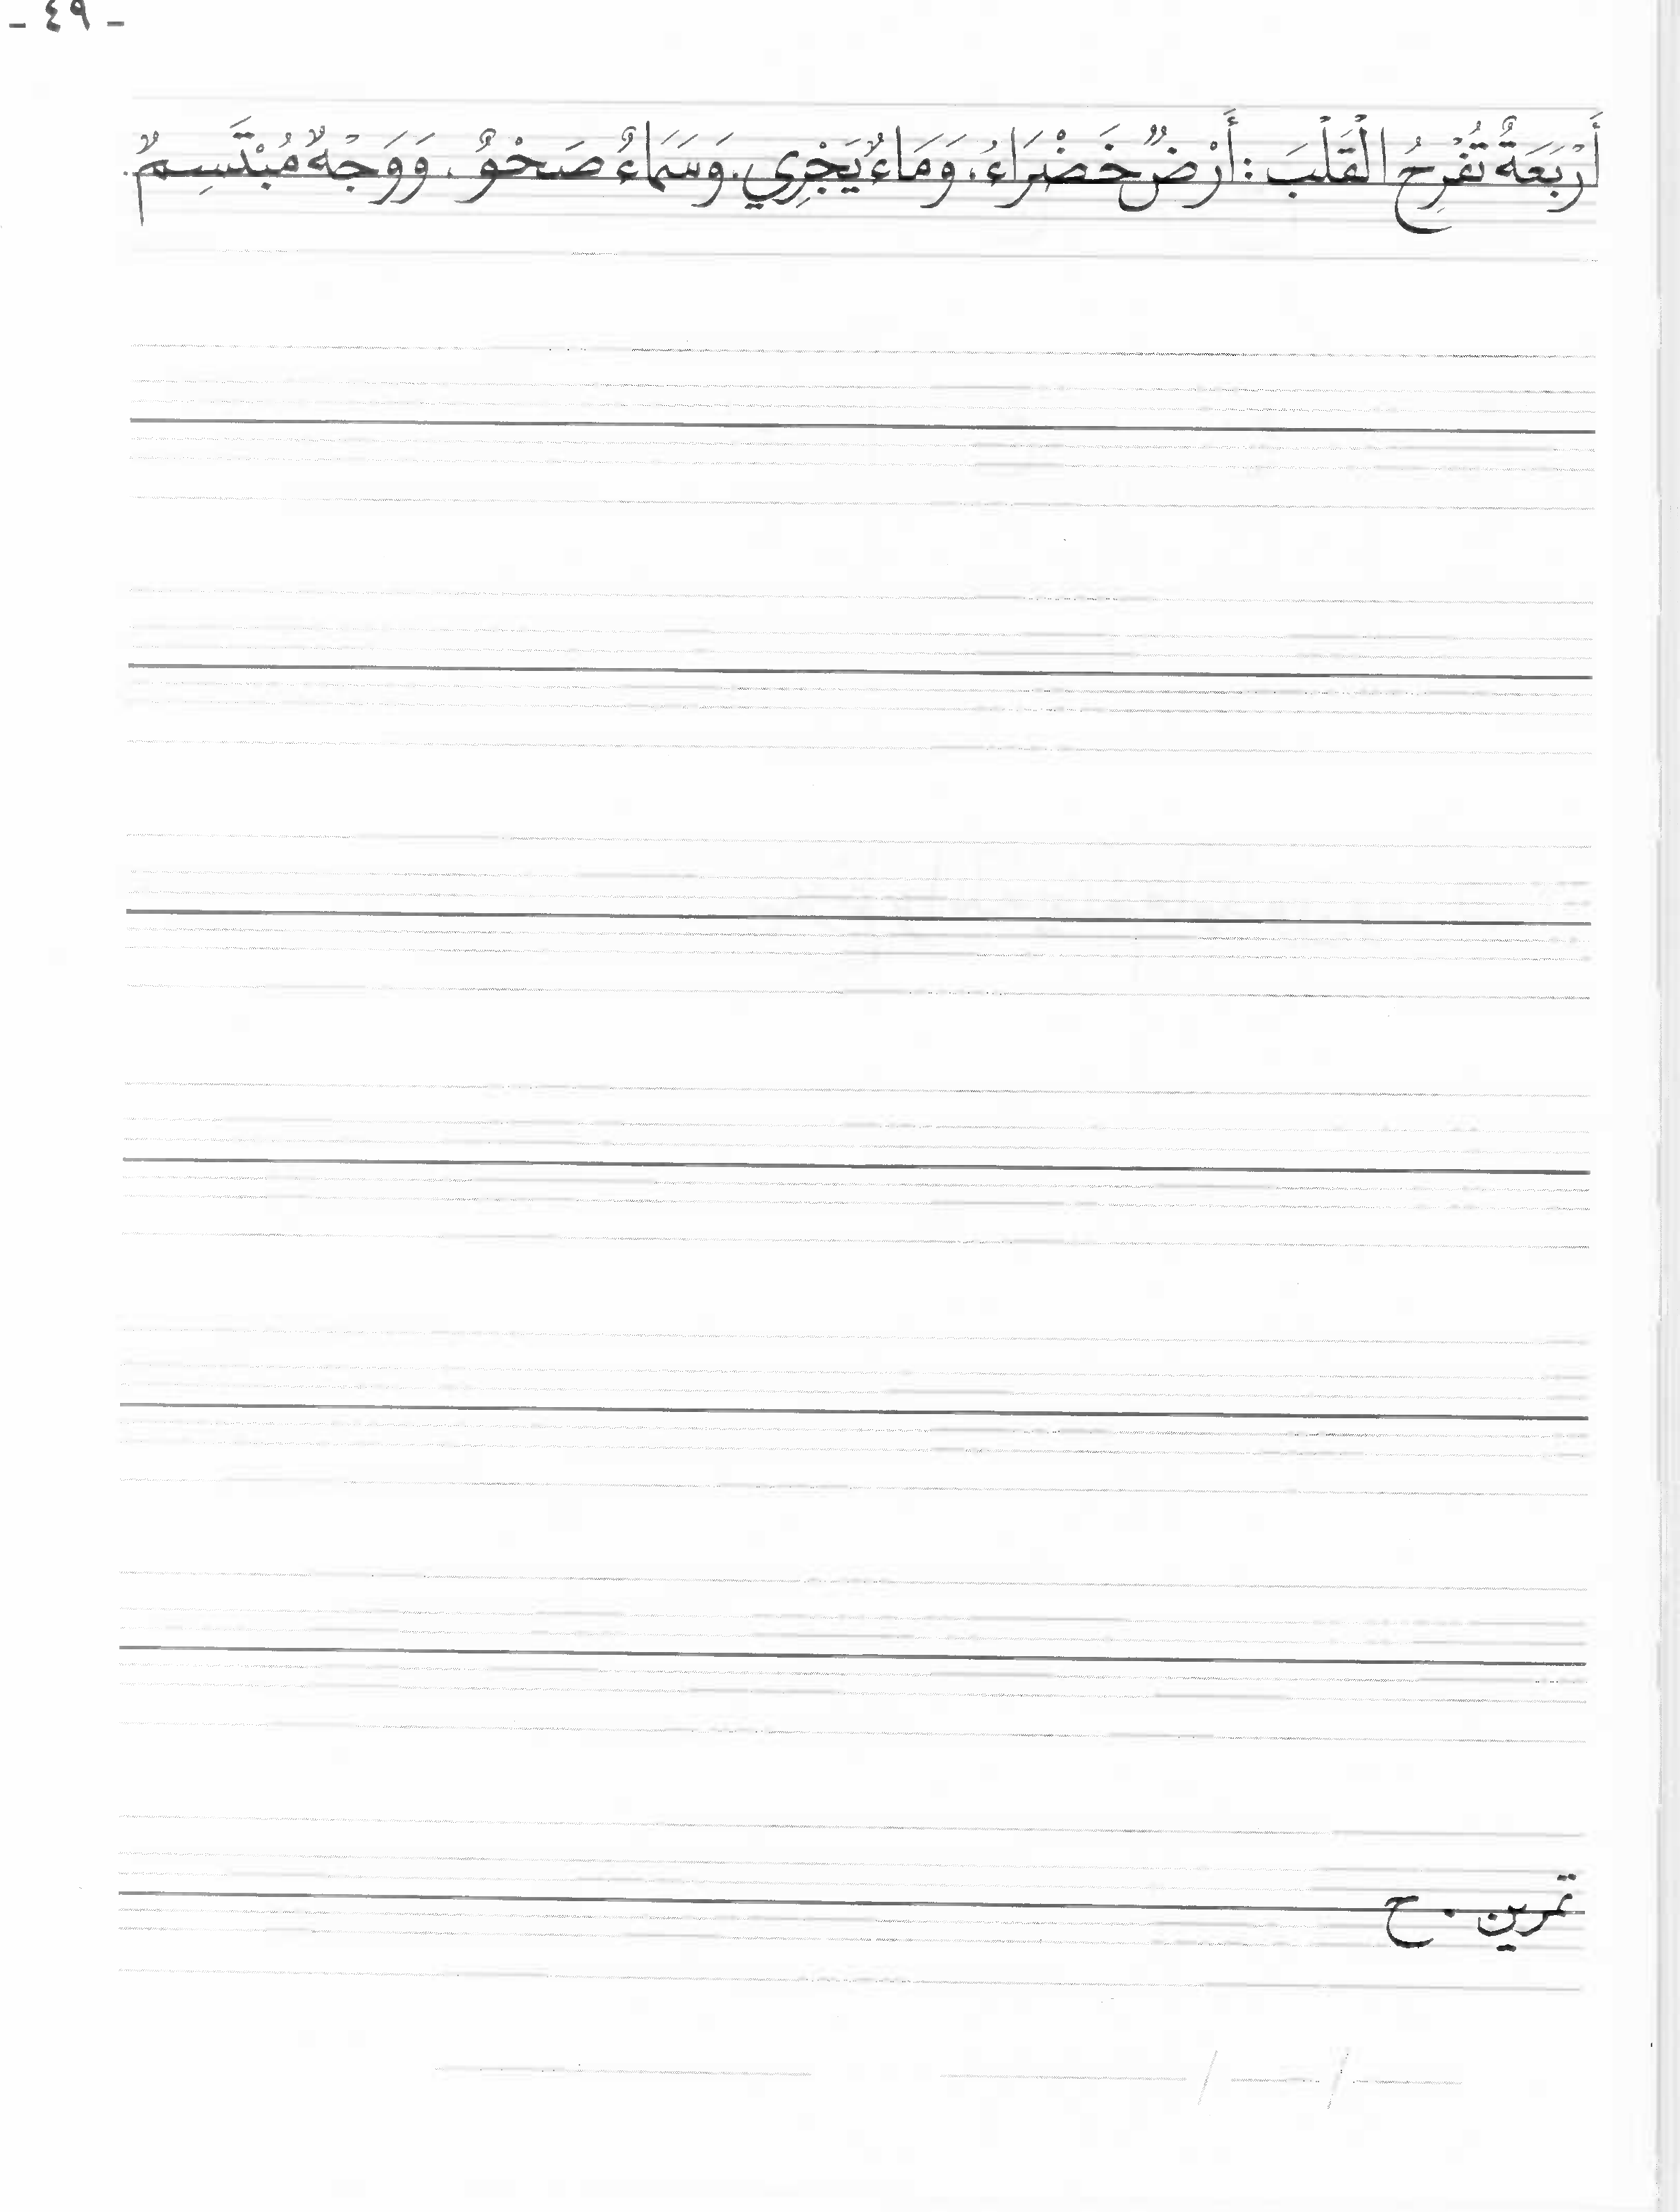 - ٤٩ -
أَرْبَعَةٌ تُفْرِحُ الْقَلْبَ : أَرْضٌ خَضْرَاءُ، وَمَاءٌ يَجْرِي، وَسَمَاءٌ صَحْوٌ، وَوَجْهٌ مُبْتَسِمٌ.
تمرين . ح